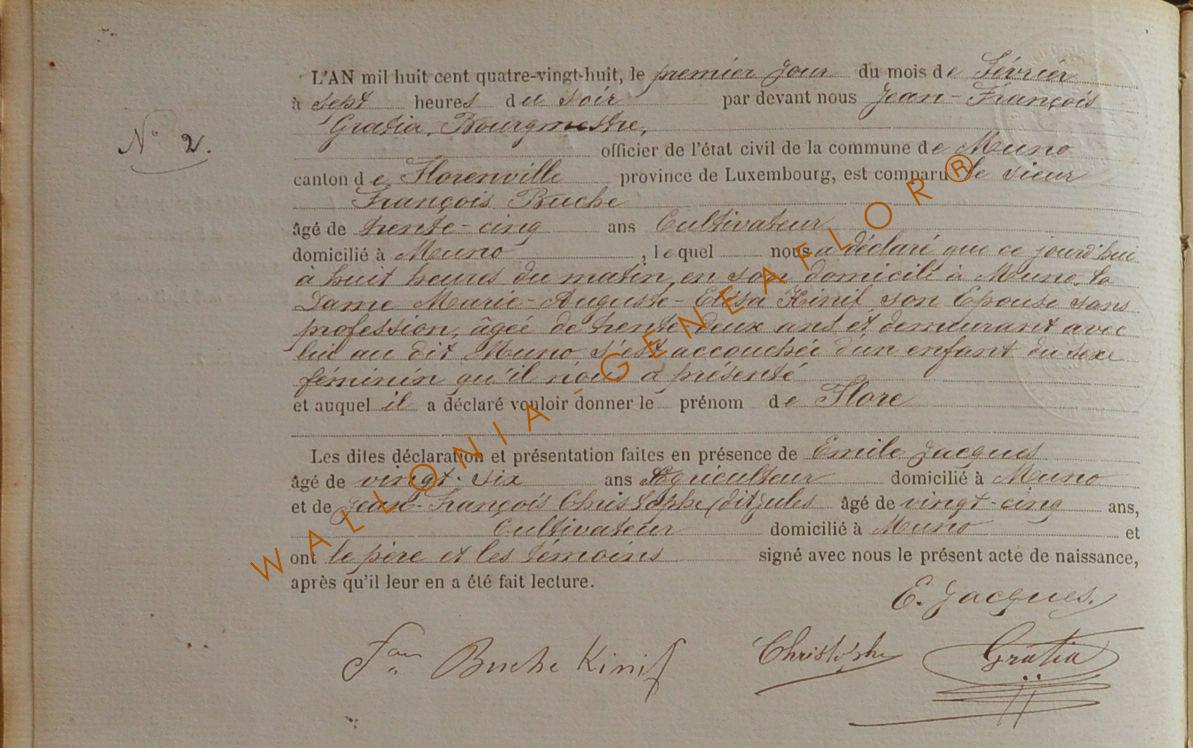 L'AN mil huit cent quatre-vingt-huit, le premier jour du mois de Février
à sept heures du soir par devant nous Jean-François
N° 2.
Gratia, Bourgmestre,
officier de l'état civil de la commune de Muno
canton de Florenville province de Luxembourg, est comparu le sieur
François Buche
âgé de trente-cinq ans Cultivateur
domicilié à Muno, lequel nous a déclaré que ce jourd'hui
à huit heures du matin, en son domicile à Muno, la
Dame Marie-Auguste-Elisa Kinif son Epouse sans
profession, âgée de trente deux ans et demeurant avec
lui au dit Muno s'est accouchée d'un enfant du sexe
féminin qu'il nous a présenté
et auquel il a déclaré vouloir donner le prénom de Flore
Les dites déclaration et présentation faites en présence de Emile Jacques
âgé de vingt-six ans Agriculteur domicilié à Muno
et de Jean-François Christophe, dit Jules âgé de vingt-cinq ans,
Cultivateur domicilié à Muno et
ont le père et les témoins signé avec nous le présent acte de naissance,
après qu'il leur en a été fait lecture.
E. Jacques.
Fçois Buche Kinif Christophe Gratia
WALLONIA-GENEAFLOR®